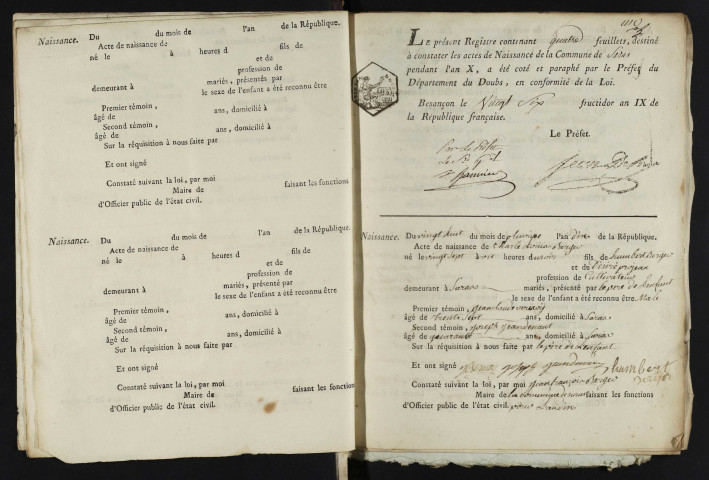 Naissance. Du du mois de l'an de la République.
Acte de naissance de fils de
né le à heures d et de
profession de
demeurant à mariés, présentés par
le sexe de l'enfant a été reconnu être
Premier témoin,
âgé de ans, domicilié à
Second témoin,
âgé de ans, domicilié à
Sur la réquisition à nous faite par
Et ont signé
Constaté suivant la loi, par moi
Maire de faisant les fonctions
d'Officier public de l'état civil.
Naissance. Du du mois de l'an de la République.
Acte de naissance de
né le à heures d fils de
et de
profession de
demeurant à mariés, présenté par
le sexe de l'enfant a été reconnu être
Premier témoin,
âgé de ans, domicilié à
Second témoin,
âgé de ans, domicilié à
Sur la réquisition à nous faite par
Et ont signé
Constaté suivant la loi, par moi
Maire de faisant les fonctions
d'Officier public de l'état civil.
LE présent Registre contenant quatre feuillets, destiné
à constater les actes de Naissance de la Commune de
pendant l'an X, a été coté et paraphé par le Préfet du
Département du Doubs, en conformité de la Loi.
Besançon le Vingt Six fructidor an IX de
la République française.
Le Préfet.
Naissance. Du vingt huit du mois de pluviose l'an dix de la République.
Acte de naissance de Berger
né le vingt sept à six heures du fils de humbert Berger
et de
profession de Cultivateur
demeurant à mariés, présenté par le père de lenfant
le sexe de l'enfant a été reconnu être Male
Premier témoin,
âgé de trente sept ans, domicilié à
Second témoin, joseph
âgé de quarante ans, domicilié à
Sur la réquisition à nous faite par le père de lenfant
Et ont signé humbert
berger
Constaté suivant la loi, par moi jeanfrançois Berger
Maire de la commune de faisant les fonctions
d'Officier public de l'état civil.